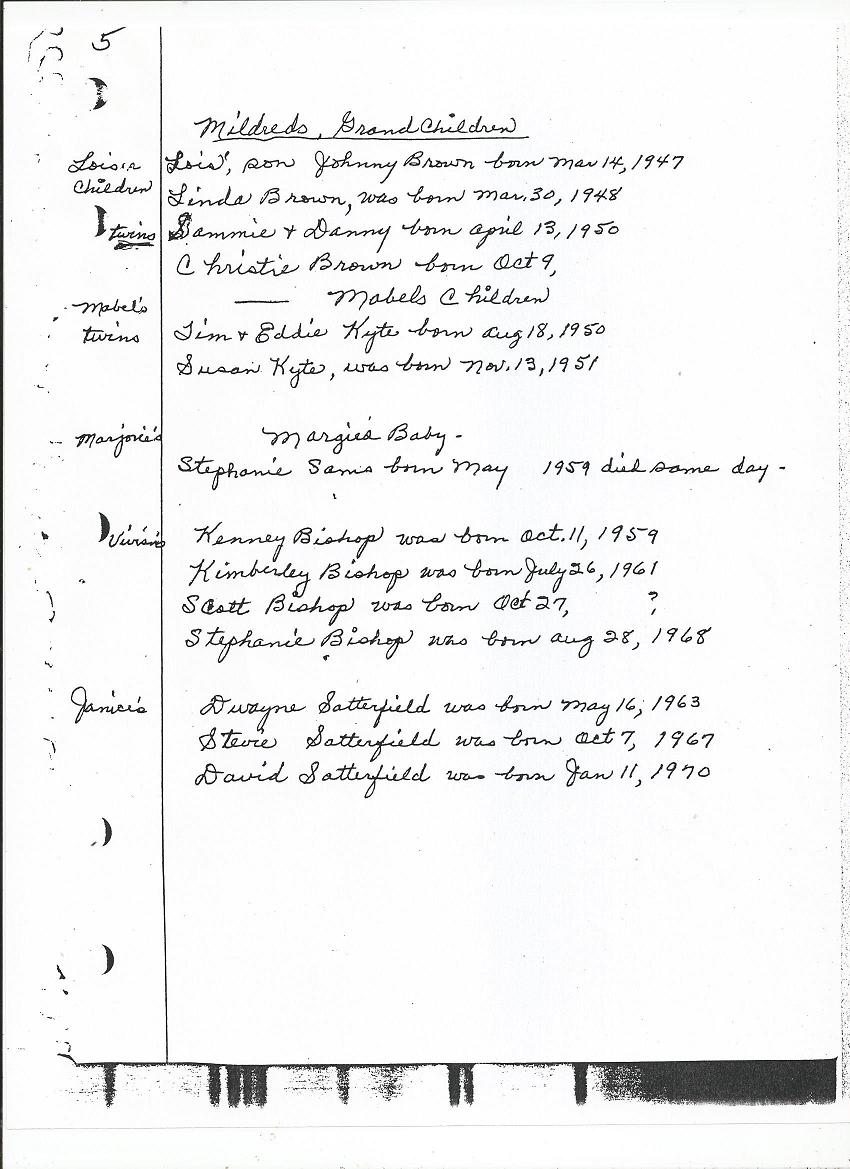 5
Mildreds, Grand Children
Lois'n Children
Lois', son Johnny Brown born Mar 14, 1947
Linda Brown, was born Mar. 30, 1948
twins
Sammie & Danny born april 13, 1950
Christie Brown born Oct 9,
Mabels Children
Mabel's twins
Tim & Eddie Kyte born aug 18, 1950
Susan Kyte, was born Nov. 13, 1951
Marjorie's
Margie's Baby -
Stephanie Sams born May 1959 died same day -
Vivian's
Kenney Bishop was born Oct. 11, 1959
Kimberley Bishop was born July 26, 1961
Scott Bishop was born Oct 27, ?
Stephanie Bishop was born aug 28, 1968
Janice's
Dwayne Satterfield was born May 16, 1963
Stevie Satterfield was born Oct 7, 1967
David Satterfield was born Jan 11, 1970